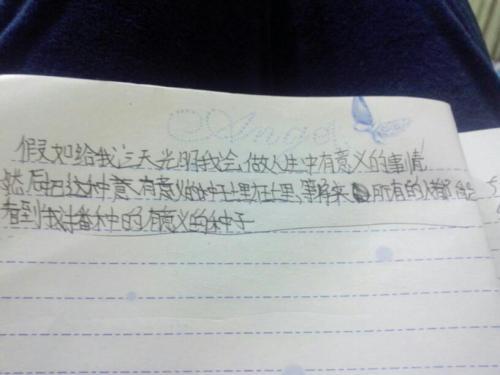 Angel
假如给我三天光明我会做人生中有意义的事情
然后把这种意有意义的种子埋在土里,等将来所有的人都能
看到我讲播种中的有意义的种子